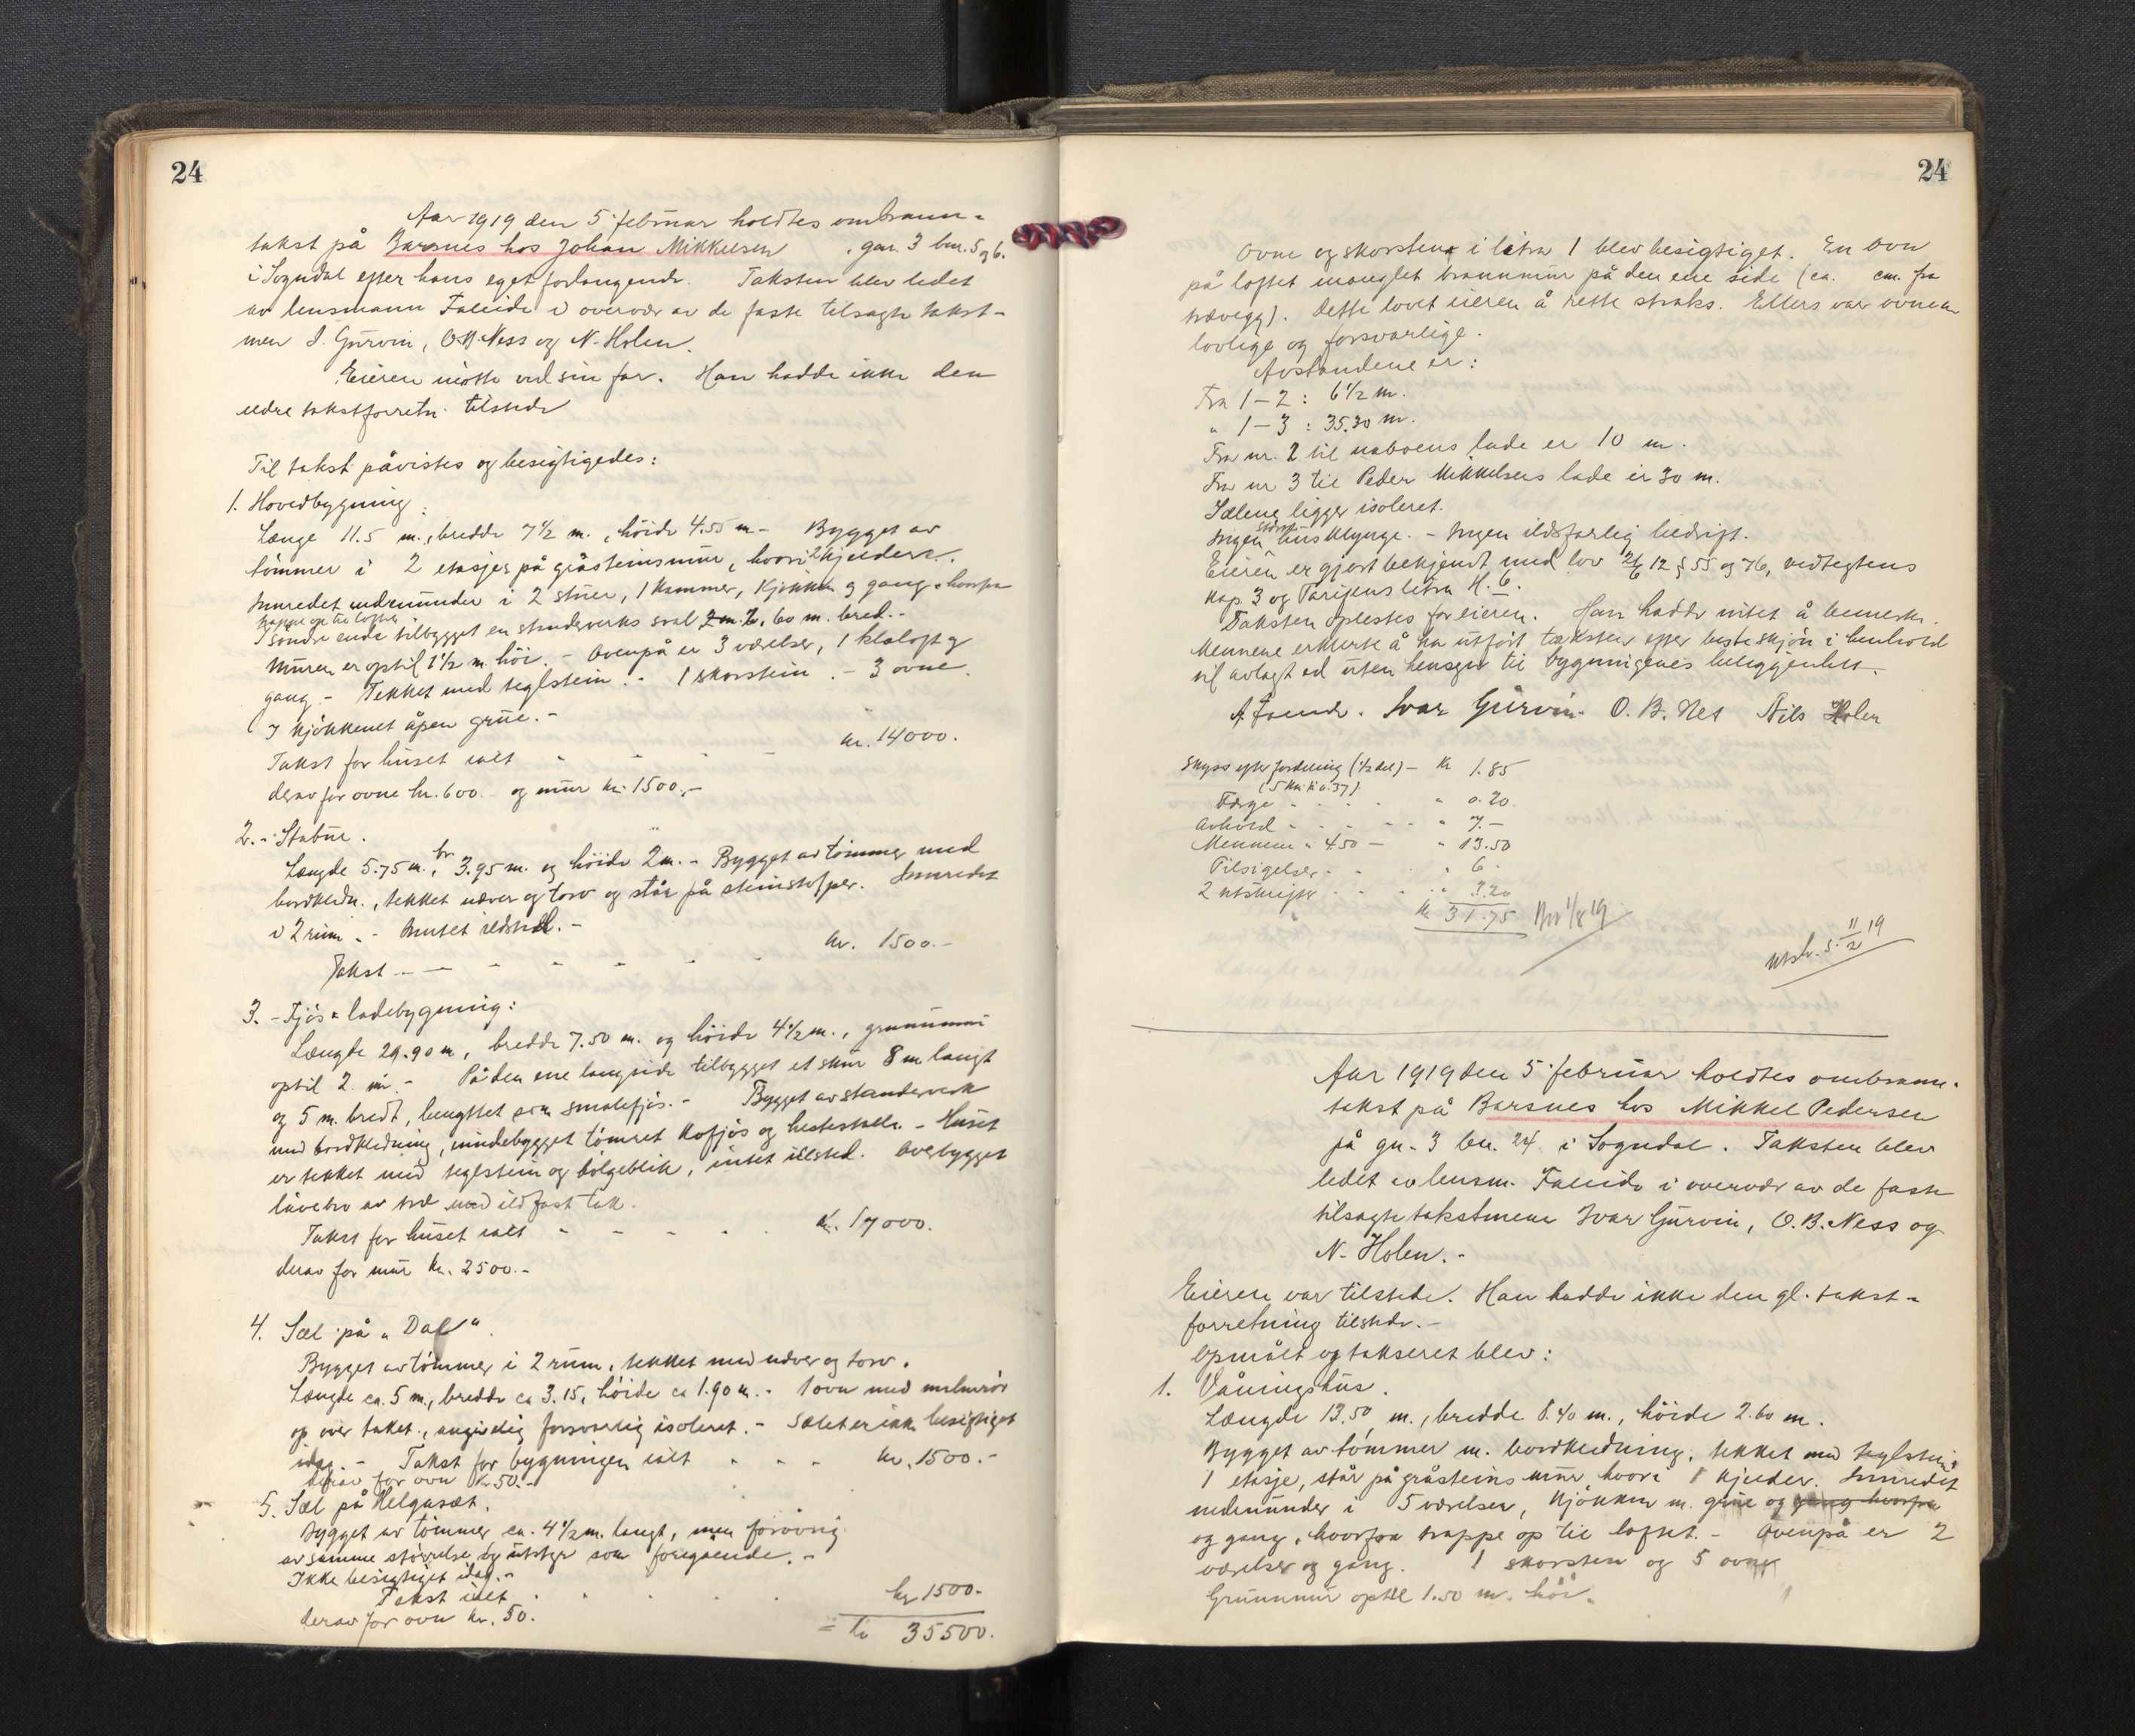 24
Aar 1919 den 5. februar holdtes ombrann-
takst på Barsnes hos Johan Mikkelsen gnr. 3 bnr. 5 og 6.
i Sogndal efter hans eget forlangende. Taksten blev ledet
av lensmann Faleide i overvær av de faste tilsagte takst-
men I. Gurvin, O.B. Ness og N. Holen.
Eieren møtte ved sin far. Han hadde ikke den
eldre takstforretn. tilstede
Til takst påvistes og besigtigedes:
1. Hovedbygning:
Længe 11.5 m., bredde 7 1/2 m., höide 4.55 m - Bygget av
tömmer i 2 etasjer på gråsteinsmur, hvori 2 kjeldere.
Innredet nedenunder i 2 stuer, 1 kammer, kjökken og gang, hvorfra
trappe op til loftet
I söndre ende tilbygget en standverks sval 2.60 m. bred. -
Muren er optil 1 1/2 m. höi. - Ovenpå er 3 værelser, 1 klæloft og
gang - Tekket med teglstein. - 1 skorstein. - 3 ovne.
I kjökkenet åpen grue. -
Takst for huset ialt - - - - kr. 14000.
derav for ovne kr. 600. - og mur kr. 1500. -
2. - Stabur.
Længde 5.75 m., br. 3.95 m. og höide 2 m. - Bygget av tömmer med
bordkledn., tekket næver og torv og står på steinstolper. Innredet
i 2 rum. - Intet ildsted. -
Takst - - - - - - kr. 1500. -
3. - Fjös & ladebygning:
Længde 29.90 m, bredde 7.50 m. og höide 4 1/2 m., grunnmur
optil 2 m. - På den ene langside tilbygget et skur 8 m langt
og 5 m. bredt, benyttet som smalefjös. - Bygget av standerverk
med bordkledning, innebygget tömret kofjös og hestestall. - Huset
er tekket med teglstein og bölgeblik, intet ildsted. Overbygget
låvebro av træ med ildfast tak.
Takst for huset ialt - - - - kr. 17000.
derav for mur kr. 2500. -
4. Sæl på "Dal".
Bygget av tömmer i 2 rum, tekket med næver og torv.
Længde ca. 5 m., bredde ca 3.15, höide ca 1.90 m. - 1 ovn med malmrör
op over taket, angivelig forsvarlig isoleret. - Sælet er ikke besigtiget
idag. - Takst for bygningen ialt - - - kr. 1500. -
derav for ovn kr. 50. -
5. Sæl på Helgasæt.
Bygget av tömmer ca. 4 1/2 m. langt, men forövrig
av samme störrelse og utstyr som foregående. -
Ikke besigtiget idag. -
Takst ialt - - - - kr 1500.-
derav for ovn kr. 50.
= kr 35500.
24
Ovne og skorstene i litra 1 blev besigtiget. En ovn
på loftet manglet brannmur på den ene side (ca. cm. fra
trævegg). Dette lovet eieren å rette straks. Ellers var ovnene
lovlige og forsvarlige.
Avstandene er:
Fra 1 - 2 : 6 1/2 m.
" 1 - 3 : 35.30 m.
Fra nr. 2 til naboens lade er 10 m.
Fra nr 3 til Peder Mikkelsens lade er 30 m.
Sælene ligger isoleret.
Ingen större husklynge. - Ingen ildsfarlig bedrift.
Eieren er gjort bekjendt med lov 21/6 12 § 55 og 76, vedtegtens
kap. 3 og Tarifens litra H. 6.
Taksten oplestes for eieren. Han hadde intet å bemerke.
Mennene erklærte å ha utfört taksten efter beste skjön i henhold
til avlagt ed uten hensyn til bygningenes beliggenhet. -
A. Faleide. Ivar Gurvin. O. B. Nes Nils Holen
Skyss efter fordeling (1/2 del) - Kr 1.85
(5 km. à 0.37)
Færge - - - - " 0.20
Avhold - - - - " 7.-
Mennene à 4.50 - " 13.50
Tilsigelser - - " 6
2 utskrifter - - - " 3.20
kr 31.75
utskr. s. 11/2 19
Aar 1919 den 5. februar holdtes ombrann-
takst på Barsnes hos Mikkel Pedersen
på gn. 3 bn. 24 i Sogndal. Taksten blev
ledet av lensm. Faleide i overvær av de faste
tilsagte takstmenn Ivar Gurvin, O. B. Ness og
N. Holen. -
Eieren var tilstede. Han hadde ikke den gl. takst-
forretning tilstede. -
Opmålt og takseret blev:
1. Våningshus.
Længde 13.50 m., bredde 8.40 m., höide 2.60 m.
Bygget av tömmer m. bordkledning, tekket med teglstein,
1 etasje, står på gråsteinsmur hvori 1 kjelder. Innredet
nedenunder i 5 værelser, kjökken m. grue og gang hvorfra
og gang, hvorfra trappe op til loftet. - Ovenpå er 2
værelser og gang. 1 skorstein og 5 ovne
Grunnmur optil 1.50 m. höi.